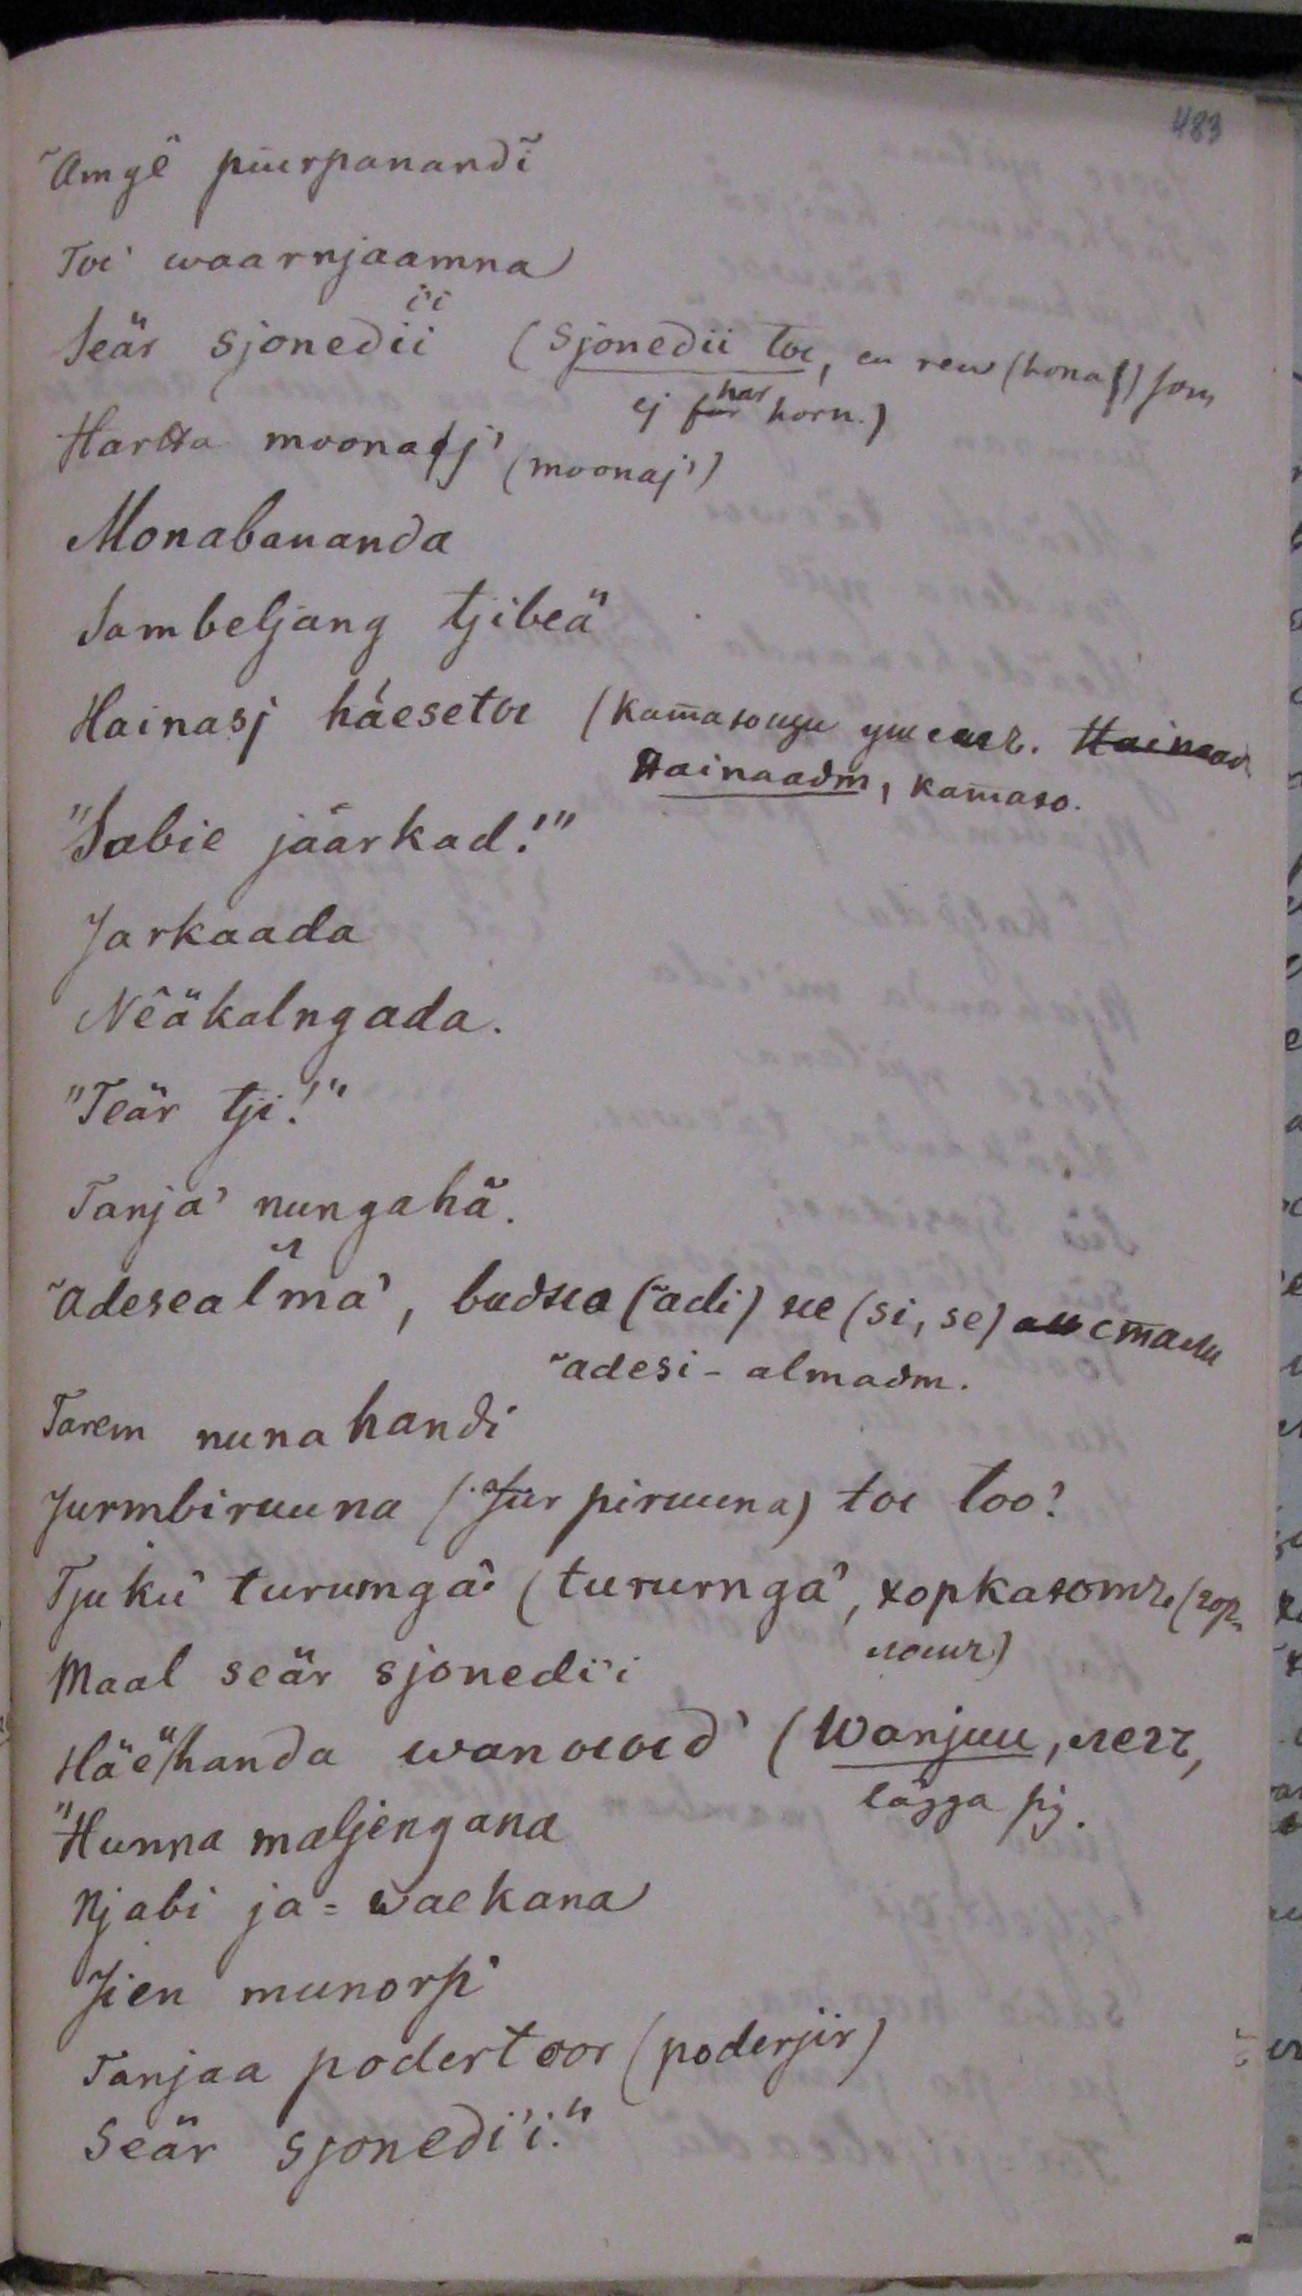 483
˜Amgê piirpanandĩ
Toi waarnjaamna
Seär sjonedii (Sjonedii toe, en ren (hona) som
ej har horn.)
Hartta moonaj' (moonaj')
Monabananda
Sambeljang tjibeä
Hainasj háesetoe (
Hainaadm,
"Sabie jäärkad!"
Jarkaada
Nêäkalngada.
"Teär tji!"
Tanja' nungahä.
˜adesealma', (˜adi) не (si, se) стали
˜adesi-almadm.
Tarem nunahandi
Jurmbiruuna (Jur piruuna) toe too?
Tjukü turumgä: (tururngä',
Maal seär sjonedi'i
Häe"handa wanoeoed' (Wanjuu, легъ,
lägga sig.
"Hunna maljengana
Njabi ja=waekana
Jien munorpi'
Tanjaa podertoor (poderjir)
Seär sjonedi'i."